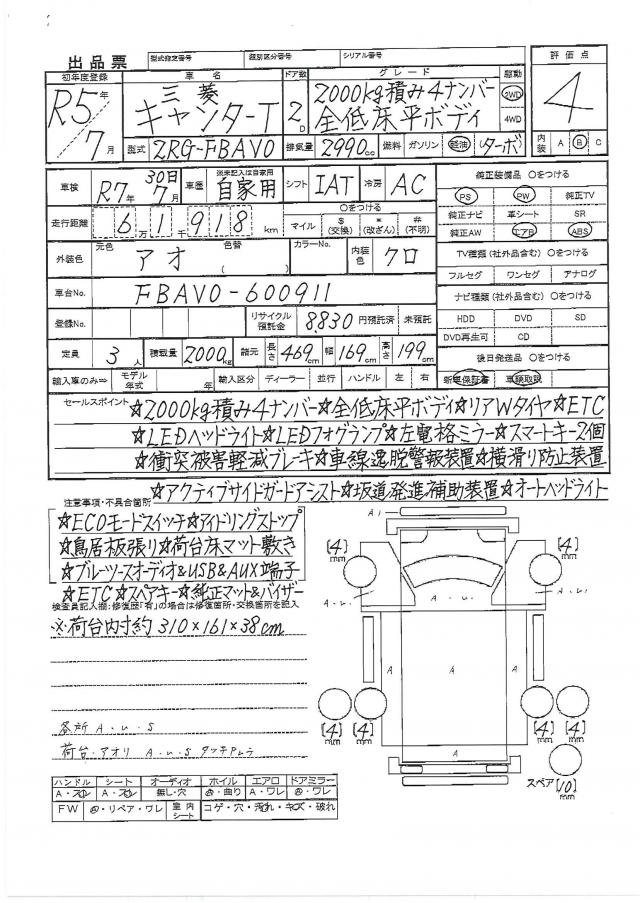 出品票 型式指定番号 類別区分番号 シリアル番号
初年度登録 車名 ドア数 グレード 駆動 評価点
R5年 三菱 2000kg積み4ナンバー 2WD
キャンターT 2D 全低床平ボディ 4WD 4
7月 型式 2RG-FBAV0 排気量 2990cc 燃料 ガソリン 軽油 (ターボ) 内装 A B C
車検 R7年 30日 7月 車歴 ※未記入は自家用 自家用 シフト IAT 冷房 AC 純正装備品 〇をつける
PS PW 純正TV
走行距離 6万1千918km 〇をつける マイル $(交換) *(改ざん) #(不明) 純正ナビ 革シート SR
純正AW エアB ABS
外装色 元色 アオ 色替 カラーNo. 内装色 クロ TV種類(社外品含む)〇をつける
フルセグ ワンセグ アナログ
車台No. FBAV0-600911 ナビ種類(社外品含む)〇をつける
登録No. リサイクル預託金 8830円預託済 未預託 HDD DVD SD
DVD再生可 CD
定員 3人 積載量 2000kg 諸元 長さ 469cm 幅 169cm 高さ 199cm 後日発送品 〇をつける
輸入車のみ⇒ モデル年式 年 輸入区分 ディーラー 並行 ハンドル 左 右 新車保証書 車検取説
セールスポイント ☆2000kg積み4ナンバー☆全低床平ボディ☆リアWタイヤ☆ETC
☆LEDヘッドライト☆LEDフォグランプ☆左電格ミラー☆スマートキー2個
☆衝突被害軽減ブレーキ☆車線逸脱警報装置☆横滑り防止装置
☆アクティブサイドガードアシスト☆坂道発進補助装置☆オートヘッドライト
注意事項・不具合箇所
☆ECOモードスイッチ☆アイドリングストップ
☆鳥居板張り☆荷台床マット敷き
☆ブルーツースオーディオ&USB&AUX端子
☆ETC☆スペアキー☆純正マット&バイザー
検査員記入欄:修復歴「有」の場合は修復箇所・交換箇所を記入
※荷台内寸約310×161×38cm
各所 A.u.S
荷台・アオリ A.u.S タッチムラ
A1
[4]mm [4]mm
A.u. A.u.
A A A
A
[4]mm [4]mm [4]mm [4]mm
スペア [10]mm
ハンドル シート オーディオ ホイル エアロ ドアミラー
A・スレ A・スレ 無し・穴 ・曲り A・ワレ ・ワレ
FW ・リペア・ワレ 室内シート コゲ・穴・汚れ・キズ・破れ